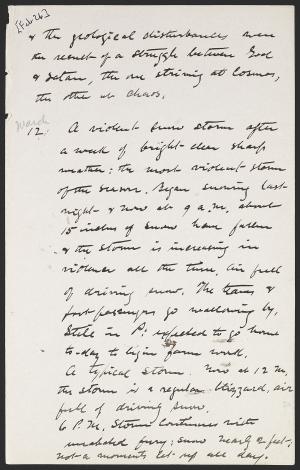 [Feb 26]
& the geological disturbances were
the result of a struggle between God
& Satan, the one striving at Cosmos,
the other at chaos.
March
12. A violent snow storm after
a week of bright clear sharp
weather; the most violent storm
of the season. Began snowing last
night & now at 9 a.m. about
15 inches of snow have fallen
& the storm is increasing in
violence all the time. Air full
of driving snow. The teams &
foot-passengers go wallowing by.
Still in P. expected to go home
to-day to begin farm work.
A typical storm. Now at 12 M.
the storm is a regular blizzard, air
full of driving snow.
6 P.M. Storm continues with
unabated fury; snow nearly 2 feet.
not a moments let up all day.